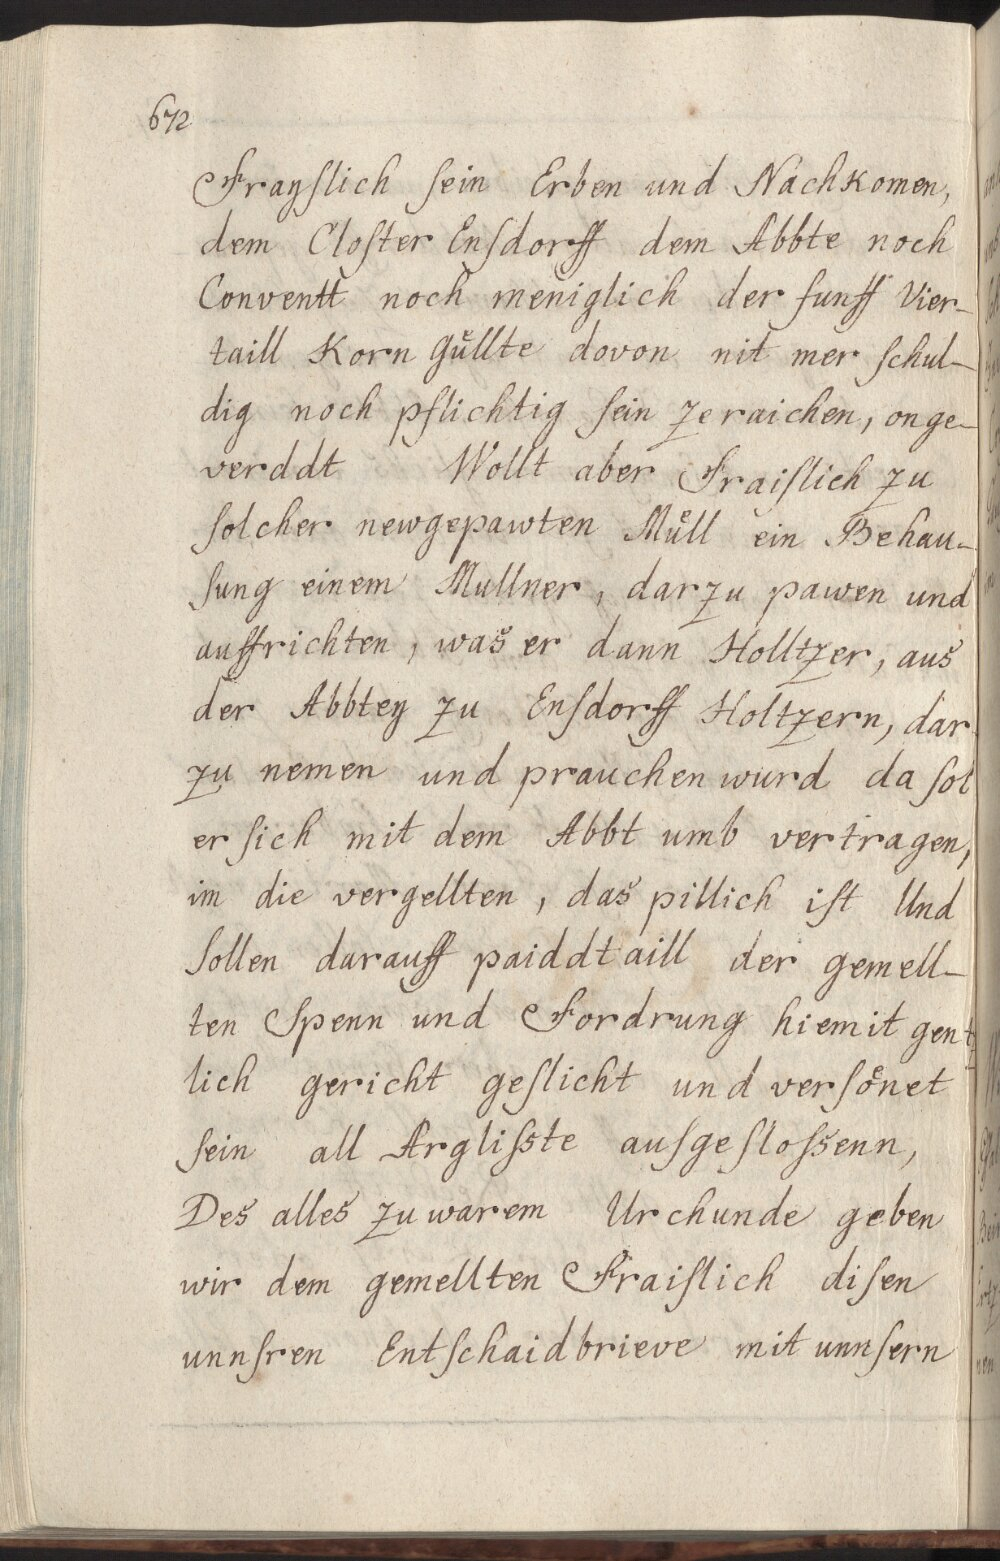 672
Frayſlich ſein Erben und Nachkomen,
dem Cloſter Enſdorff dem Abbte noch
Conventt noch meniglich der funff Vier-
taill Korn Guͤllte dovon nit mer ſchul-
dig noch pflichtig ſein zeraichen, onge-
verddt Wollt aber Fraiſlich zu
ſolcher newgepawten Muͤll ein Behau-
ſung einem Mullner, darzu pawen und
auffrichten, was er dann Holltzer, aus
der Abbtey zu Enſdorff Holtzern, dar-
zu nemen und prauchen wurd da ſol
er ſich mit dem Abbt umb vertragen,
im die vergellten, das pillich iſt Und
ſollen darauff paiddtaill der gemell-
ten Spenn und Fordrung hiemit gentz
lich gericht geſlicht und verſoͤnet
ſein all Ærgliſste auſgeſloſsenn,
Des alles zu warem Urchunde geben
wir dem gemellten Fraiſlich diſen
unnſren Entſchaidbrieve mit unnſern